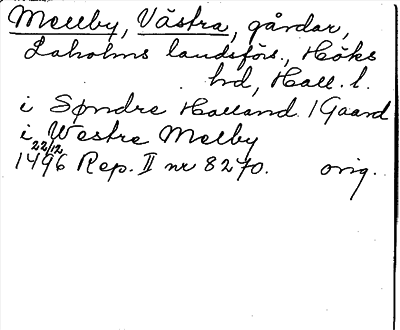 Mellby, Västra, gårdar,
Laholms landsförs., Höks
hd, Hall. l.
i Søndre Halland 1 Gaard
i Westre Melby
22/12
1496 Rep. II nr 8270. orig.